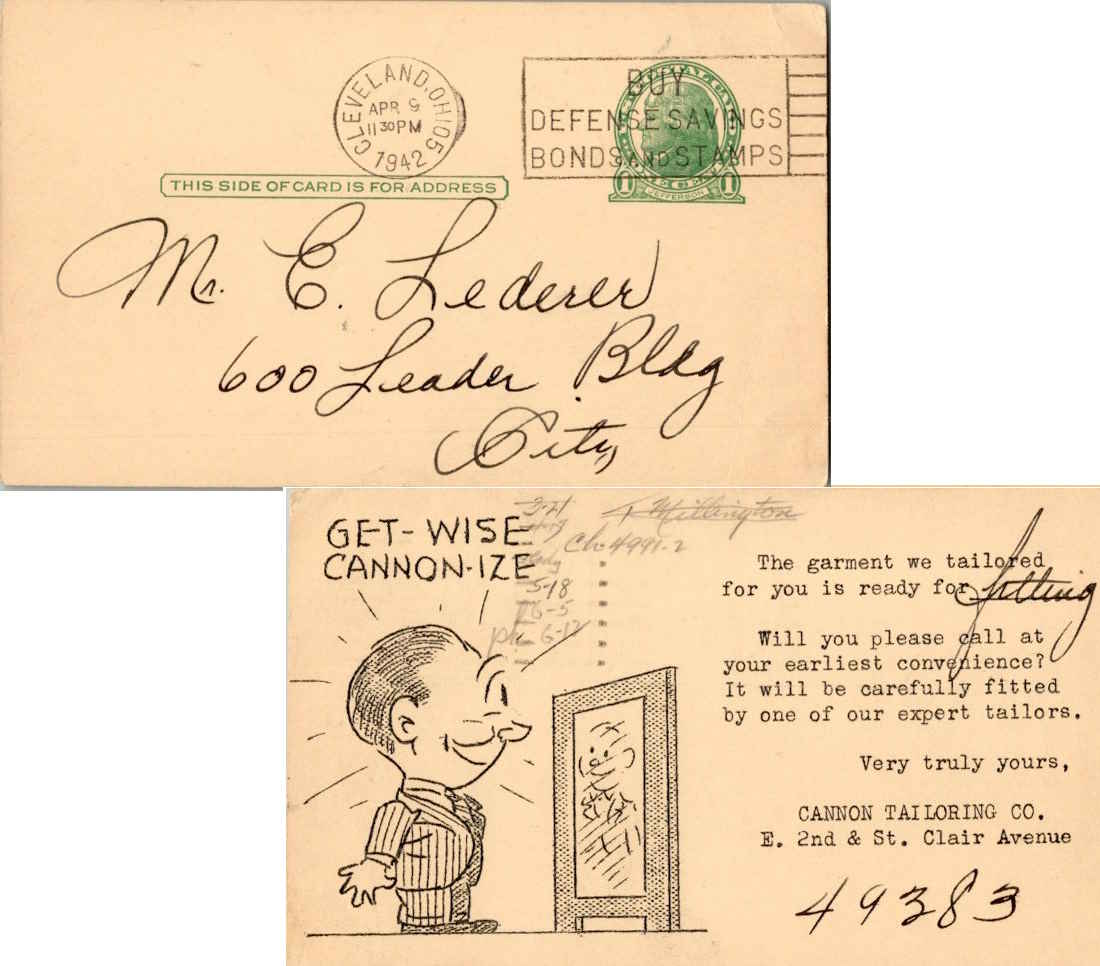 CLEVELAND, OHIO 5
APR 9
11 30 PM
1942
BUY
DEFENSE SAVINGS
BONDS AND STAMPS
1 1
JEFFERSON
THIS SIDE OF CARD IS FOR ADDRESS
Mr. E. Lederer
600 Leader Bldg
City
GET-WISE
CANNON-IZE
3-21
T Millington
Ch-4991-2
5-18
6-5
6-17
The garment we tailored
for you is ready for fitting
Will you please call at
your earliest convenience?
It will be carefully fitted
by one of our expert tailors.
Very truly yours,
CANNON TAILORING CO.
E. 2nd & St. Clair Avenue
49383